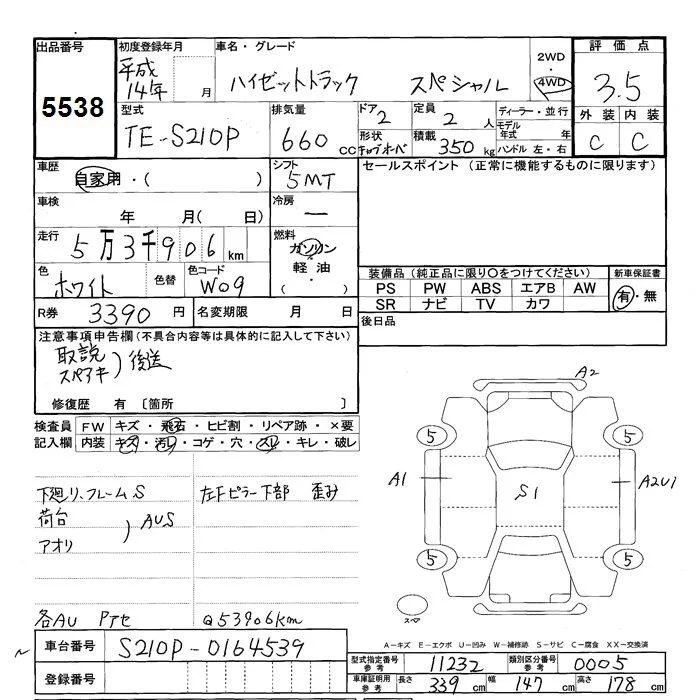 出品番号
5538
初度登録年月
平成
14年 月
車名・グレード
ハイゼットトラック スペシャル
2WD
・
4WD
評価点
3.5
外装 内装
C C
型式
TE-S210P
排気量
660 CC
ドア
2
定員
2 人
ディーラー・並行
モデル
年式 年
形状
キャブオーバ
積載
350 kg
ハンドル 左・右
車歴
自家用・( )
シフト
5MT
セールスポイント (正常に機能するものに限ります)
車検
年 月( 日)
冷房
ー
走行
5万3千906 km
燃料
ガソリン
軽油・
( )
色
ホワイト
色替
色コード
W09
装備品 (純正品に限り○をつけてください)
新車保証書
PS PW ABS エアB AW
SR ナビ TV カワ
有・無
R券 3390 円
名変期限 月 日
後日品
注意事項申告欄 (不具合内容等は具体的に記入して下さい)
取説
スペアキ
)後送
修復歴 有 [箇所 ]
検査員
記入欄
FW キズ・飛石・ヒビ割・リペア跡・×要
内装 キズ・汚レ・コゲ・穴・スレ・キレ・破レ
下廻り、フレームS
左Fピラー下部 歪み
荷台
アオリ
)AUS
各AU PTセ
@53906km
A2
5 5
A1
S1
A2U1
5 5
スペア
A-キズ E-エクボ U-凹み W-補修跡 S-サビ C-腐食 XX-交換済
~
車台番号 S210P-0164539
登録番号
型式指定番号
参考
11232
類別区分番号
参考
0005
車庫証明用
参考
長さ 339 cm 幅 147 cm 高さ 178 cm